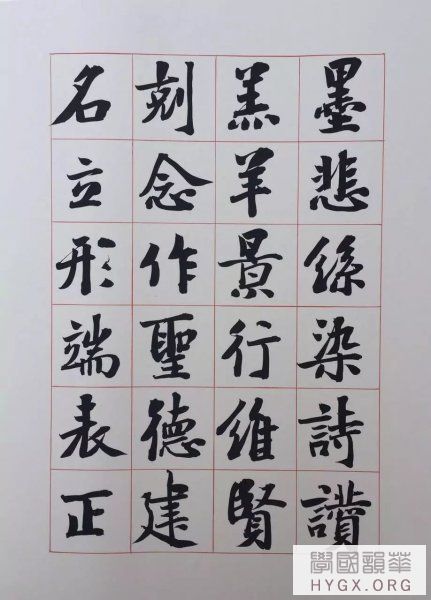 墨悲絲染詩讚
羔羊景行維賢
剋念作聖德建
名立形端表正
華韻國學
HYGX.ORG